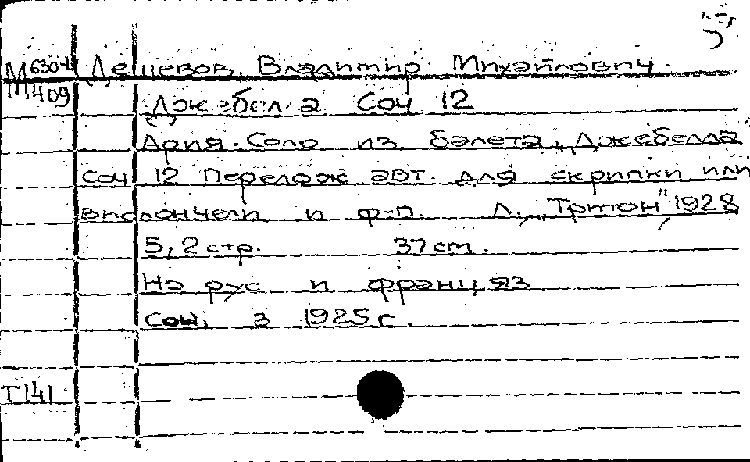 М 6304 Дешевов, Владимир Михайлович.
М 409 Джебелла Соч 12
Ария-Соло из балета „Джебелла"
Соч 12 Перелож авт. для скрипки или
виолончели и ф-п. Л., „Тритон" 1928
5, 2 стр. 37 cm.
На рус и франц яз
Соч. з 1925 г.
Т 141